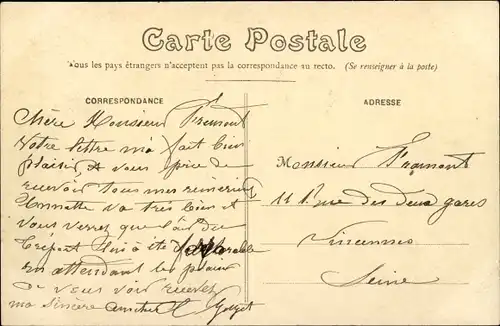 Carte Postale
Tous les pays étrangers n'acceptent pas la correspondance au recto. (Se renseigner à la poste)
CORRESPONDANCE
ADRESSE
Chère Monsieur Framont
Votre lettre ma fait bien
plaisir, je vous prie de
recevoir tous mes
va très bien et
vous verrez que l'air du
Tréport lui a été favorable
en attendant le plaisir
de vous voir recevez
ma sincère amitié
Monsieur Framont
11 Rue des deux gares
Vincennes
Seine